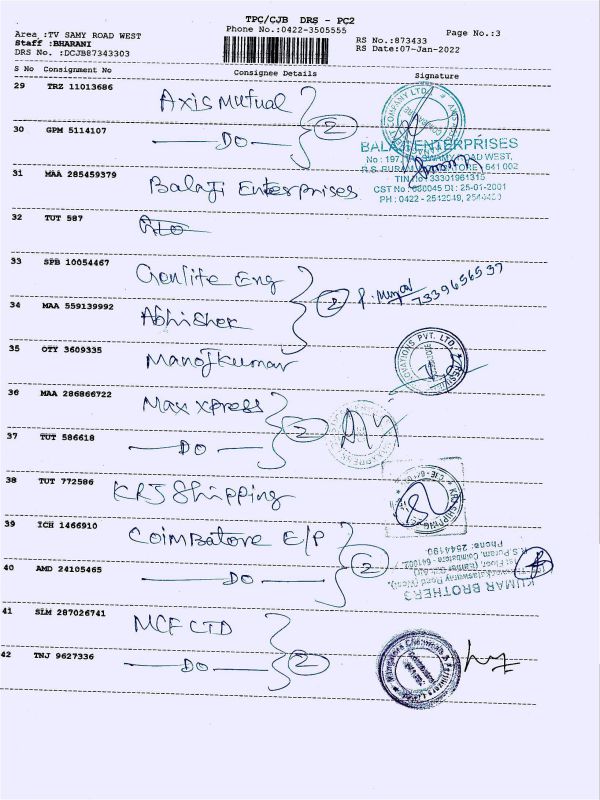 TPC/CJB DRS - PC2
Phone No.:0422-3505555
Page No.:3
Area :TV SAMY ROAD WEST
Staff :BHARANI
DRS No. :DCJB87343303
RS No.:873433
RS Date:07-Jan-2022
S No Consignment No Consignee Details Signature
29 TRZ 11013686 Axis Mutual
30 GPM 5114107 — DO — 2
BALAJI ENTERPRISES
ROAD WEST,
641 002
TIN No: 33301961315
CST No : 688045 Dt : 25-01-2001
PH : 0422 - 2542949,
31 MAA 285459379 Balaji Enterprises
32 TUT 587
33 SPB 10054467 Genlife Eng
34 MAA 559139992 Abhishek 2 7339656537
35 OTY 3609335 Manojkumar
36 MAA 286866722 Max xpress
37 TUT 586618 — DO — 2
38 TUT 772586 KRJ Shipping
39 ICH 1466910 Coimbatore E/P
40 AMD 24105465 — DO — 2
KUMAR BROTHERS
R.S.Puram, Coimbatore - 641002.
Phone: 2544190
41 SLM 287026741 MCF LTD
42 TNJ 9627336 — DO — 2